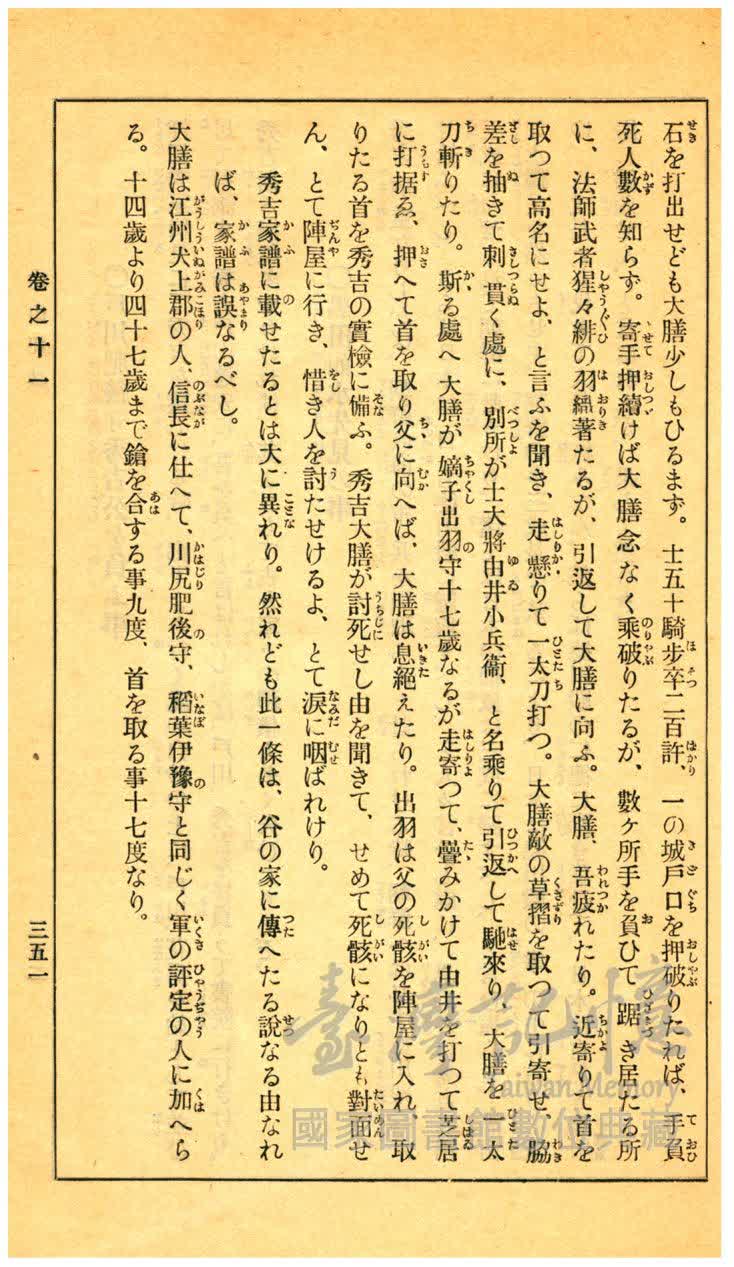 石を打出せども大膳少しもひるまず。士五十騎步卒二百許、一の城戶口を押破りたれば、手負
死人數を知らず。寄手押續けば大膳念なく乘破りたるが、數ヶ所手を負ひて踞き居たる所
に、法師武者猩々緋の羽織著たるが、引返して大膳に向ふ。大膳、吾疲れたり。近寄りて首を
取つて高名にせよ、と言ふを聞き、走懸りて一太刀打つ。大膳敵の草摺を取つて引寄せ、脇
差を抽きて刺貫く處に、別所が士大將由井小兵衞、と名乘りて引返して馳來り、大膳を一太
刀斬りたり。斯る處へ大膳が嫡子出羽守十七歲なるが走寄つて、疊みかけて由井を打つて芝居
に打据ゑ、押へて首を取り父に向へば、大膳は息絕えたり。出羽は父の死骸を陣屋に入れ、取
りたる首を秀吉の實檢に備ふ。秀吉大膳が討死せし由を聞きて、せめて死骸になりとも對面せ
ん、とて陣屋に行き、惜き人を討たせけるよ、とて淚に咽ばれけり。
秀吉家譜に載せたるとは大に異れり。然れども此一條は、谷の家に傳へたる說なる由なれ
ば、家譜は誤なるべし。
大膳は江州犬上郡の人、信長に仕へて、川尻肥後守、稻葉伊豫守と同じく軍の評定の人に加へら
る。十四歲より四十七歲まで鎗を合する事九度、首を取る事十七度なり。
卷之十一
三五一
臺灣記憶
Taiwan Memory
國家圖書館數位典藏